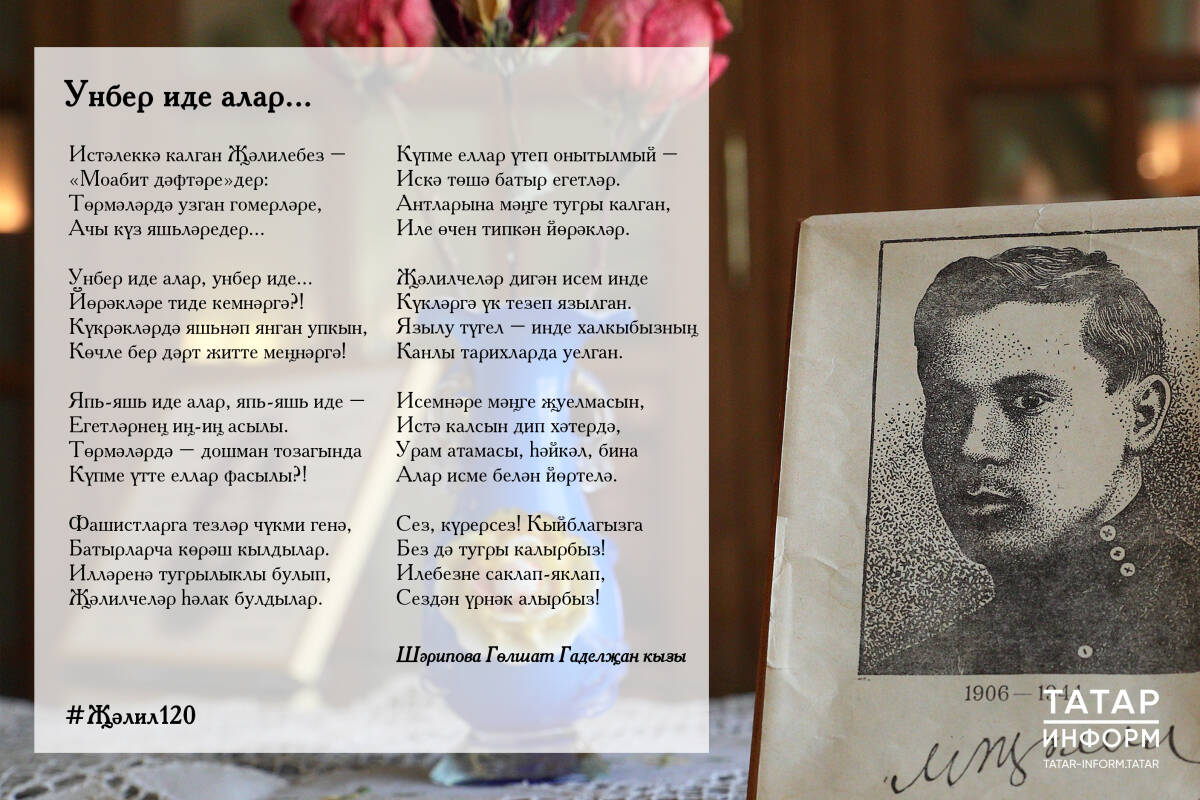 Унбер иде алар...
Истәлеккә калган Җәлилебез –
«Моабит дәфтәре»дер:
Төрмәләрдә узган гомерләре,
Ачы күз яшьләредер...
Унбер иде алар, унбер иде...
Йөрәкләре тиде кемнәргә?!
Күкрәкләрдә яшьнәп янган упкын,
Көчле бер дәрт житте меңнәргә!
Япь-яшь иде алар, япь-яшь иде –
Егетләрнең иң-иң асылы.
Төрмәләрдә – дошман тозагында
Күпме үтте еллар фасылы?!
Фашистларга тезләр чүкми генә,
Батырларча көрәш кылдылар.
Илләренә тугрылыклы булып,
Җәлилчеләр һәлак булдылар.
Күпме еллар үтеп онытылмый –
Искә төшә батыр егетләр.
Антларына мәңге тугры калган,
Иле өчен типкән йөрәкләр.
Җәлилчеләр дигән исем инде
Күкләргә үк тезеп язылган.
Язылу түгел – инде халкыбызның
Канлы тарихларда уелган.
Исемнәре мәңге җуелмасын,
Истә калсын дип хәтердә,
Урам атамасы, һәйкәл, бина
Алар исме белән йөртелә.
Сез, күрерсез! Кыйблагызга
Без дә тугры калырбыз!
Илебезне саклап-яклап,
Сездән үрнәк алырбыз!
Шәрипова Гөлшат Гаделҗан кызы
#Җәлил120
1906 – 1944
ТАТАР
ИНФОРМ
TATAR-INFORM.TATAR